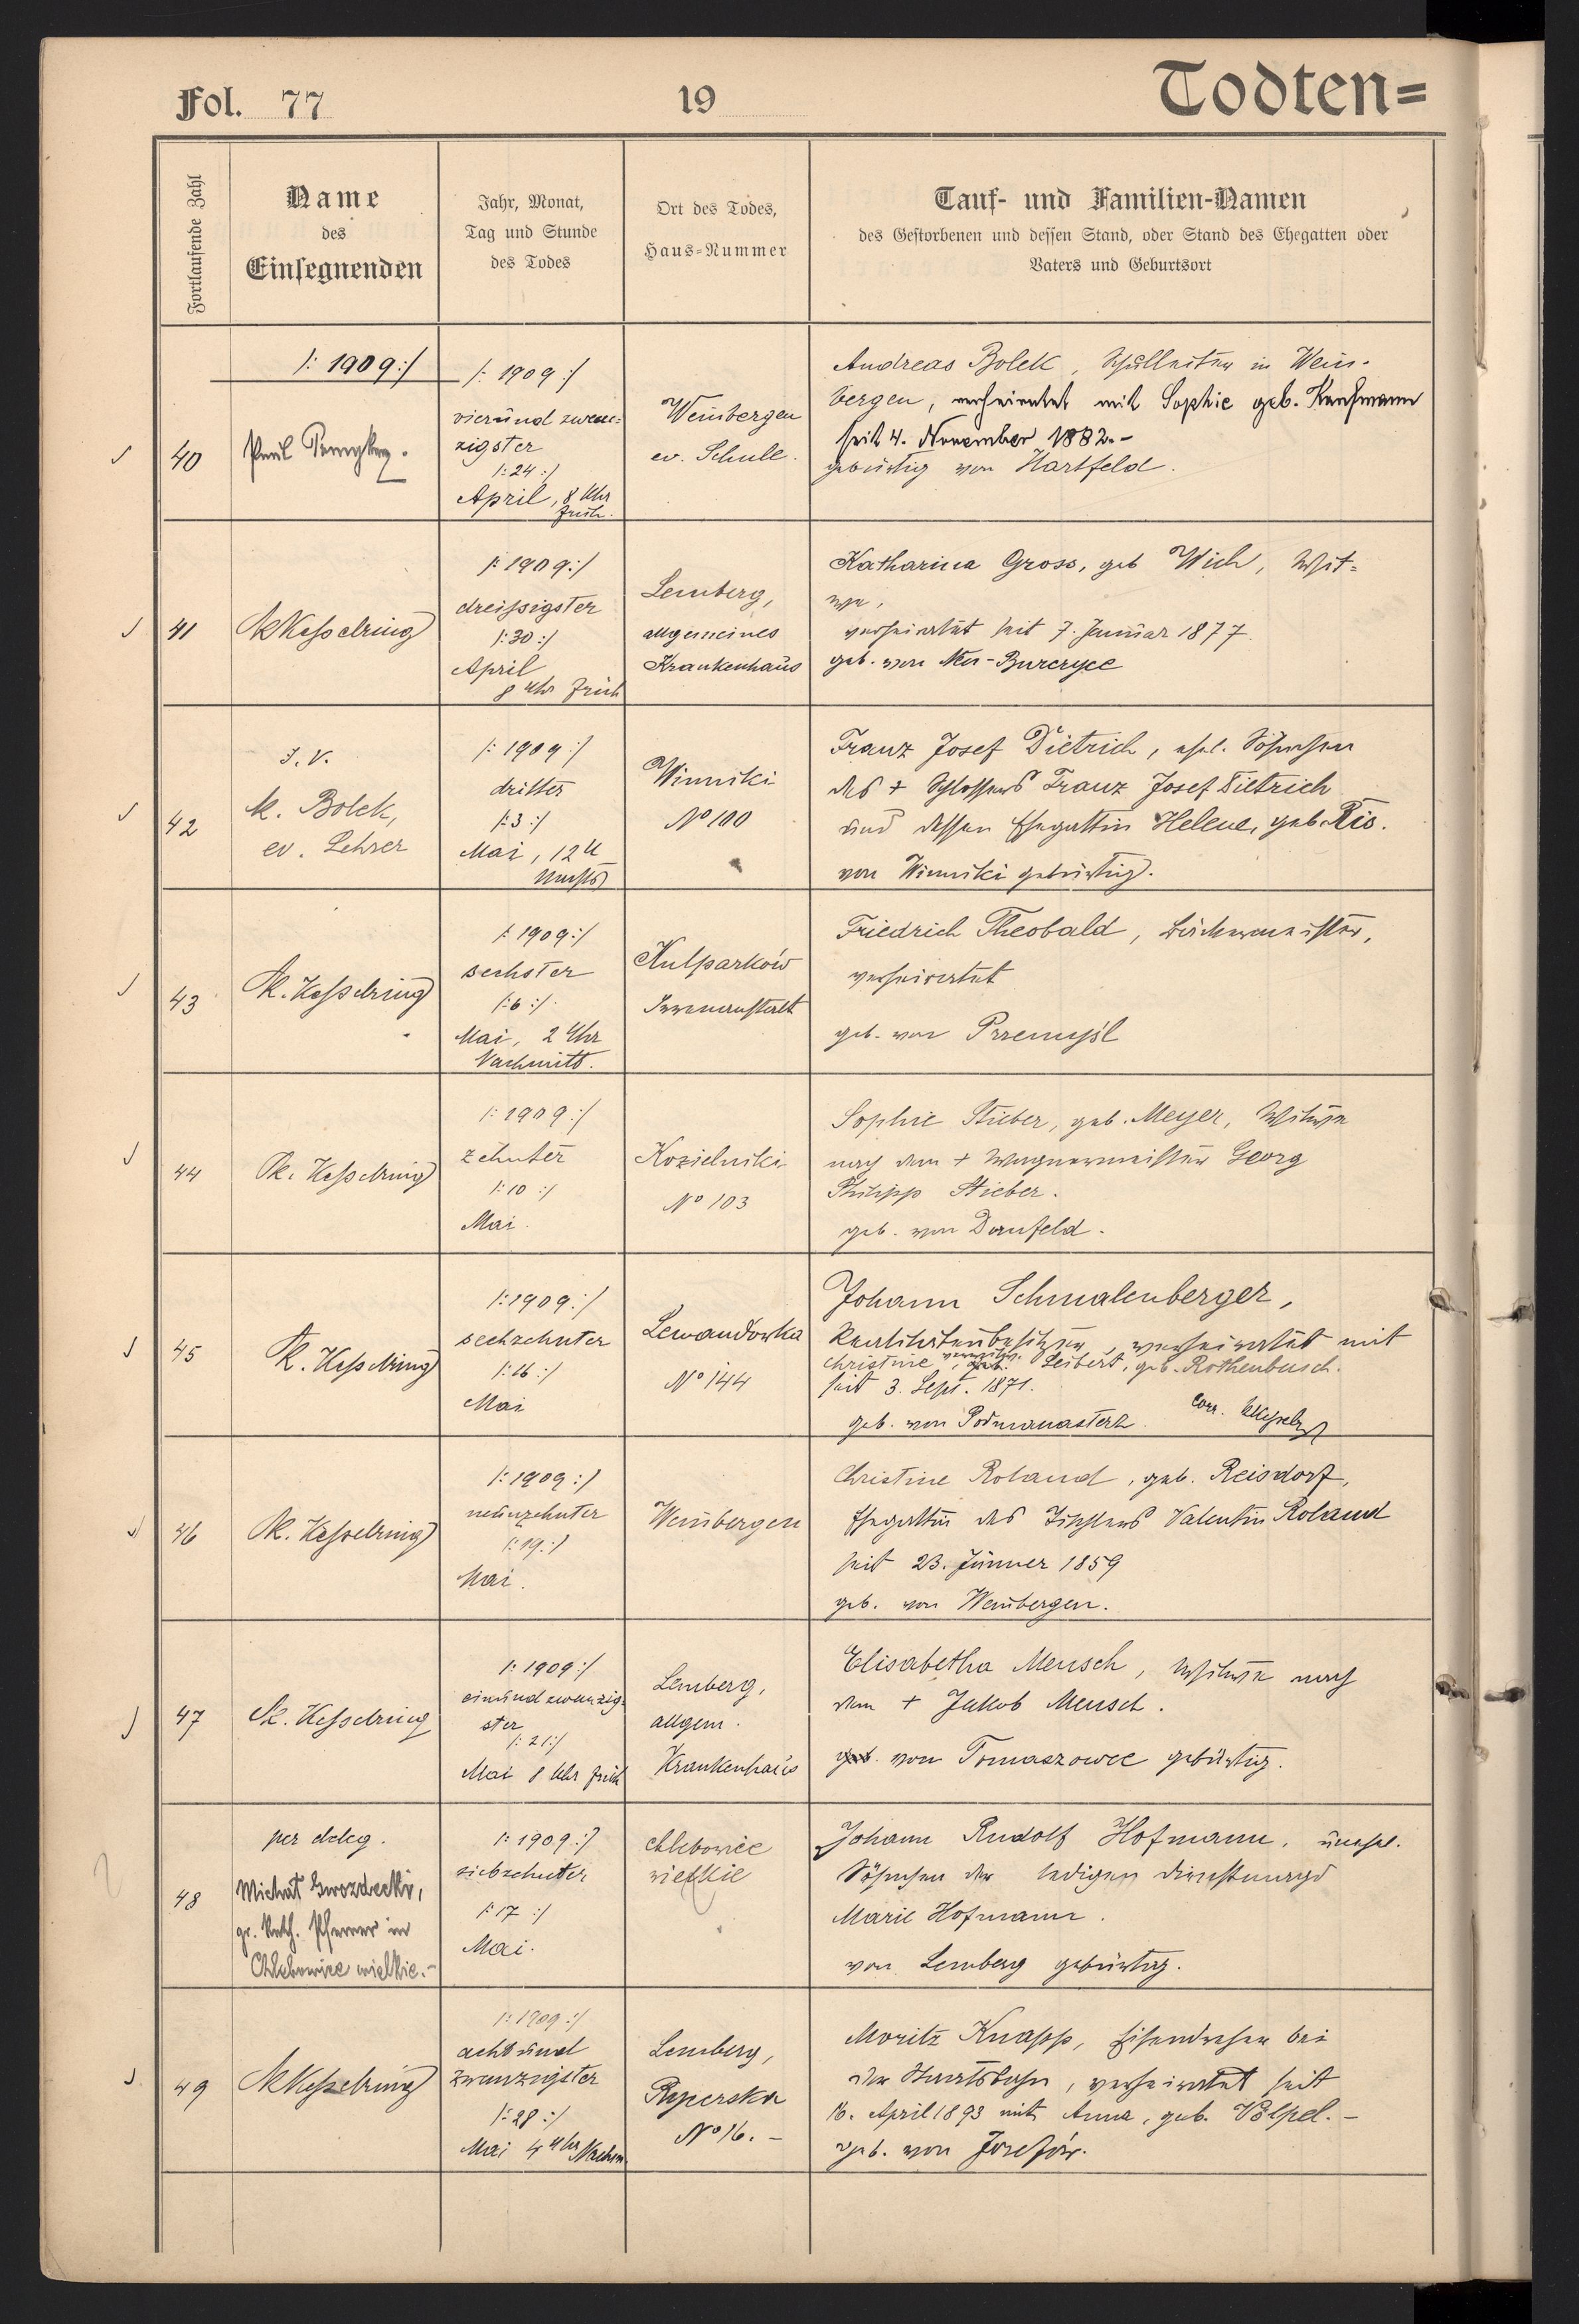 Fol. 77
19
Todten=
Fortlaufende Zahl
Name
des
Einsegnenden
Jahr, Monat,
Tag und Stunde
des Todes
Ort des Todes,
Haus-Nummer
Tauf- und Familien-Namen
des Gestorbenen und dessen Stand, oder Stand des Ehegatten oder
Vaters und Geburtsort
/: 1909 :/
40
Paul
/: 1909 :/
vierundzwan=
zigster
/: 24 :/
April, 8 Uhr
Früh.
Weinbergen
ev. Schule.
Andreas Bolek, Schulleiter in Wein-
bergen, verheiratet mit Sophie geb. Kaufmann
seit 4. November 1882.-
gebürtig von Hartfeld.
41
Kesselring
/: 1909 :/
dreissigster
/: 30 :/
April
8 Uhr Früh
Lemberg,
allgemeines
Krankenhaus
Katharina Gross, geb Wich, Wit=
we,
verheiratet seit 7. Januar 1877.
geb. von Neu-Burczyce
42
I. V.
K. Bolek,
ev. Lehrer
/: 1909 :/
dritter
/: 3 :/
Mai, 12 U
Nachts
Winniki
No 100
Franz Josef Dietrich, ehel. Söhnchen
des + Schlossers Franz Josef Dietrich
und dessen Ehegattin Helene, geb. Ris.
von Winniki gebürtig.
43
K. Kesselring
/: 1909 :/
sechster
/: 6 :/
Mai, 2 Uhr
Nachmitt.
Kulparków
Irrenanstalt
Friedrich Theobald, Bäckermeister,
verheiratet
geb. von Przemyśl
44
K. Kesselring
/: 1909 :/
zehnter
/: 10 :/
Mai.
Kozielniki
No 103
Sophie Stieber, geb. Meyer, Witwe
nach dem + Wagnermeister Georg
Philipp Stieber.
geb. von Dornfeld.
45
K. Kesselring
/: 1909 :/
sechzehnter
/: 16 :/
Mai
Lewandowka
No 144
Johann Schmalenberger,
Realitätenbesitzer, verheiratet mit
Christine verwitw. Leibert, geb. Rothenbusch.
seit 3. Sept. 1871.
geb. von Podmanasterz. Corr. Kesselring
46
K. Kesselring
/: 1909 :/
neunzehnter
/: 19 :/
Mai.
Weinbergen
Christine Roland, geb. Reisdorf,
Ehegattin des Tischlers Valentin Roland
seit 23. Jänner 1859
geb. von Weinbergen.
47
K. Kesselring
/: 1909 :/
einundzwanzig-
ster
/: 21 :/
Mai 8 Uhr früh
Lemberg,
allgem.
Krankenhaus
Elisabetha Mensch, Witwe nach
dem + Jakob Mensch.
geb. von Tomaszowce gebürtig.
48
per deleg.
Michał Gwozdecki,
gr. kath. Pfarrer in
Chlebowice wielkie.-
/: 1909 :/
siebzehnter
/: 17 :/
Mai.
Chlebowice
wielkie
Johann Rudolf Hofmann, unehel.
Söhnchen der ledigen Dienstmagd
Marie Hofmann.
von Lemberg gebürtig.
49
Kesselring
/: 1909 :/
achtund
zwanzigster
/: 28 :/
Mai 4 Uhr Nachm.
Lemberg,
No 16.-
Moritz Knapp, Eisendreher bei
der Staatsbahn, verheiratet seit
16. April 1893 mit Anna, geb. Völpel.-
geb. von Josefów.